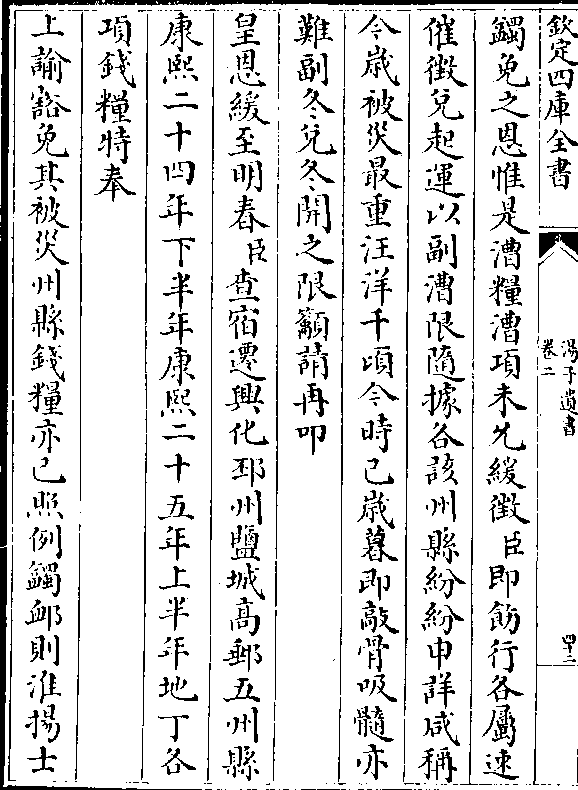 欽定四庫全書
湯子遺書
卷二
四十二
蠲免之恩惟是漕糧漕項未允緩徵臣即飭行各屬速
催徵兌起運以副漕限隨據各該州縣紛紛申詳咸稱
今歲被災最重汪洋千頃今時已歲暮即敲骨吸髓亦
難副冬兌冬開之限籲請再叩
皇恩緩至明春臣查宿遷興化邳州鹽城高郵五州縣
康熙二十四年下半年康熙二十五年上半年地丁各
項錢糧特奉
上諭豁免其被災州縣錢糧亦已照例蠲䘏則淮揚士